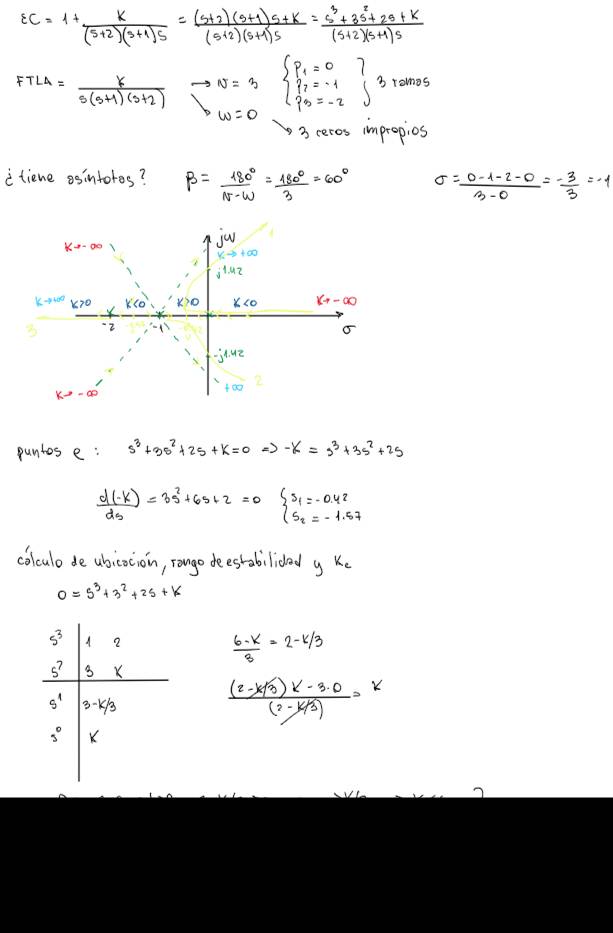 EC = 1 + K/((s+2)(s+1)s) = ((s+2)(s+1)s+K)/((s+2)(s+1)s) = (s³+3s²+2s+K)/((s+2)(s+1)s)
FTLA = K/(s(s+1)(s+2)) → N = 3 { P₁ = 0 P₂ = -1 P₃ = -2 } 3 ramas
↘ W = 0 ↘ 3 ceros impropios
¿tiene asíntotas? β = 180°/(N-W) = 180°/3 = 60° σ = (0-1-2-0)/(3-0) = -3/3 = -1
jω 1
K→-∞ K→+∞
j1.42
K→+∞ K>0 K<0 K>0 K<0 K→-∞
3 -2 -1 σ
-j1.42
2
K→-∞ +∞
puntos e : s³+3s²+2s+K=0 => -K = s³+3s²+2s
d(-K)/ds = 3s²+6s+2 = 0 { s₁ = -0.42 s₂ = -1.57
cálculo de ubicación, rango de estabilidad y Kc
0 = s³+3²+2s+K
s³ | 1 2 (6-K)/3 = 2-K/3
s² | 3 K
s¹ | 3-K/3 ((2-K/3)K-3·0)/(2-K/3) = K
s⁰ | K